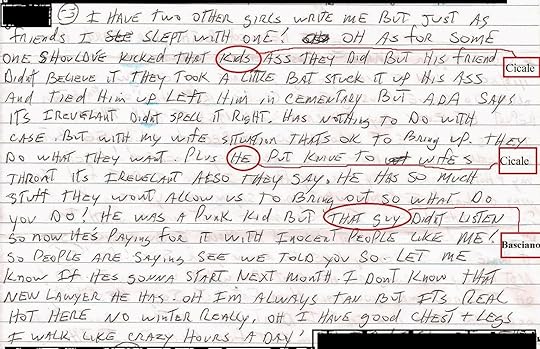 (3) I HAVE TWO OTHER GIRLS WRITE ME BUT JUST AS
FRIENDS I SLEPT WITH ONE! OH AS FOR SOME
ONE SHOULDVE KICKED THAT KIDS ASS THEY DID BUT HIS FRIEND
Cicale
DIDNT BELIEVE IT THEY TOOK A LITTLE BAT STUCK IT UP HIS ASS
AND TIED HIM UP LEFT HIM IN CEMENTARY BUT ADA SAYS
ITS IRREVELANT DIDNT SPELL IT RIGHT. HAS NOTHING TO DO WITH
CASE. BUT WITH MY WIFE SITUATION THATS OK TO BRING UP. THEY
DO WHAT THEY WANT. PLUS HE PUT KNIVE TO WIFES
Cicale
THROAT ITS IRELEVANT ALSO THEY SAY, HE HAS SO MUCH
STUFF THEY WONT ALLOW US TO BRING OUT SO WHAT DO
YOU DO! HE WAS A PUNK KID BUT THAT GUY DIDNT LISTEN
SO NOW HE'S PAYING FOR IT WITH INOCENT PEOPLE LIKE ME!
Basciano
SO PEOPLE ARE SAYING SEE WE TOLD YOU SO. LET ME
KNOW IF HES GONNA START NEXT MONTH. I DONT KNOW THAT
NEW LAWYER HE HAS. OH IM ALWAYS TAN BUT ITS REAL
HOT HERE NO WINTER REALLY, OH I HAVE GOOD CHEST + LEGS
I WALK LIKE CRAZY HOURS A DAY!